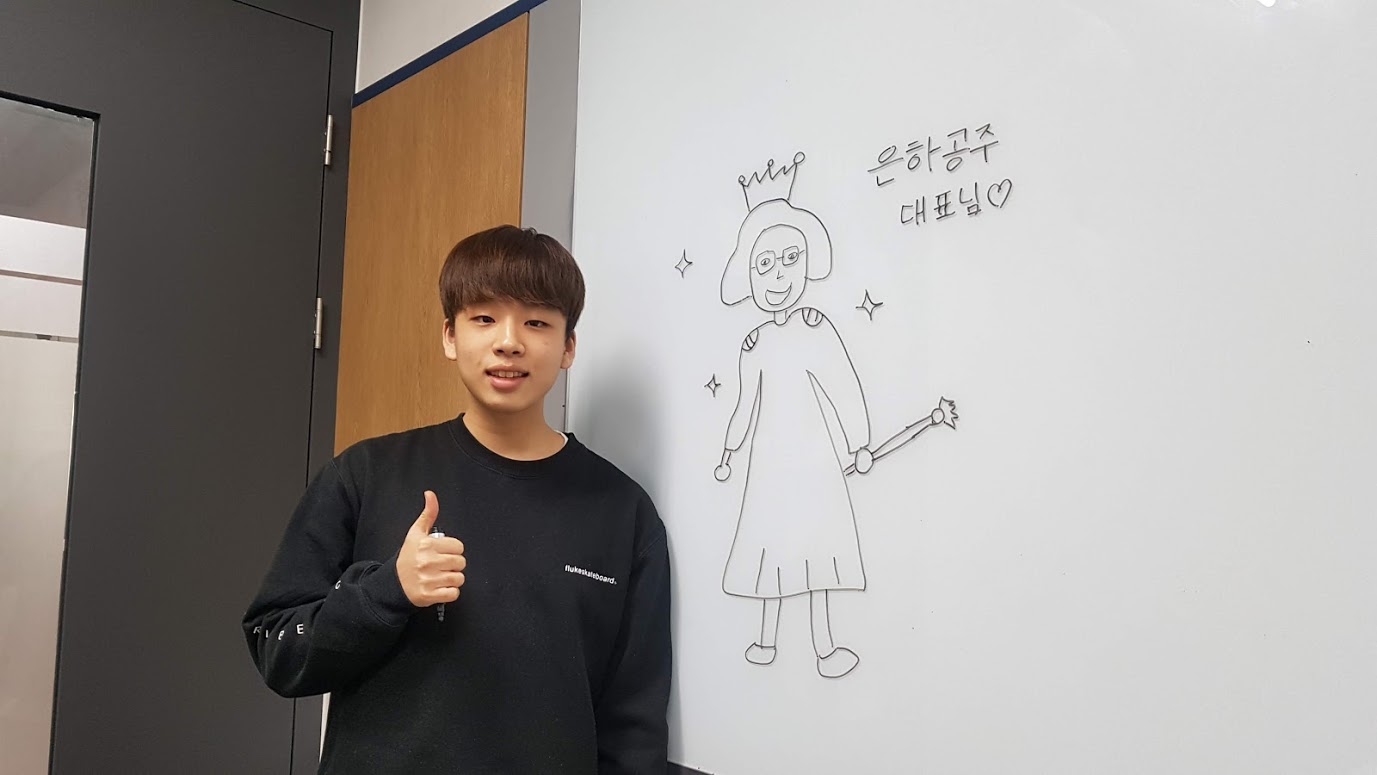 은하공주
대표님♡
flukeskateboard.